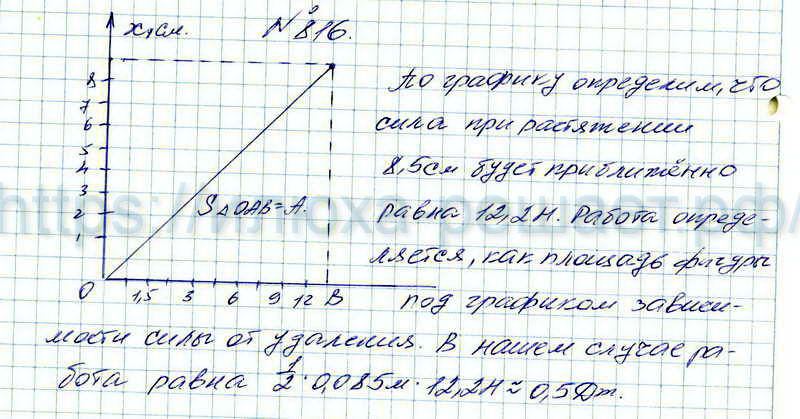 x, см. № 816.
8
7
6
5
4
3
2
1
S△OAB=A.
0 1,5 3 6 9 12 B
По графику определим, что
сила при растяжении
8,5см будет приближённо
равна 12,2Н. Работа опреде-
ляется, как площадь фигуры
под графиком зависи-
мости силы от удаления. В нашем случае ра-
бота равна 1/2 · 0,085м · 12,2Н ≈ 0,5Дж.
https://
.рф/